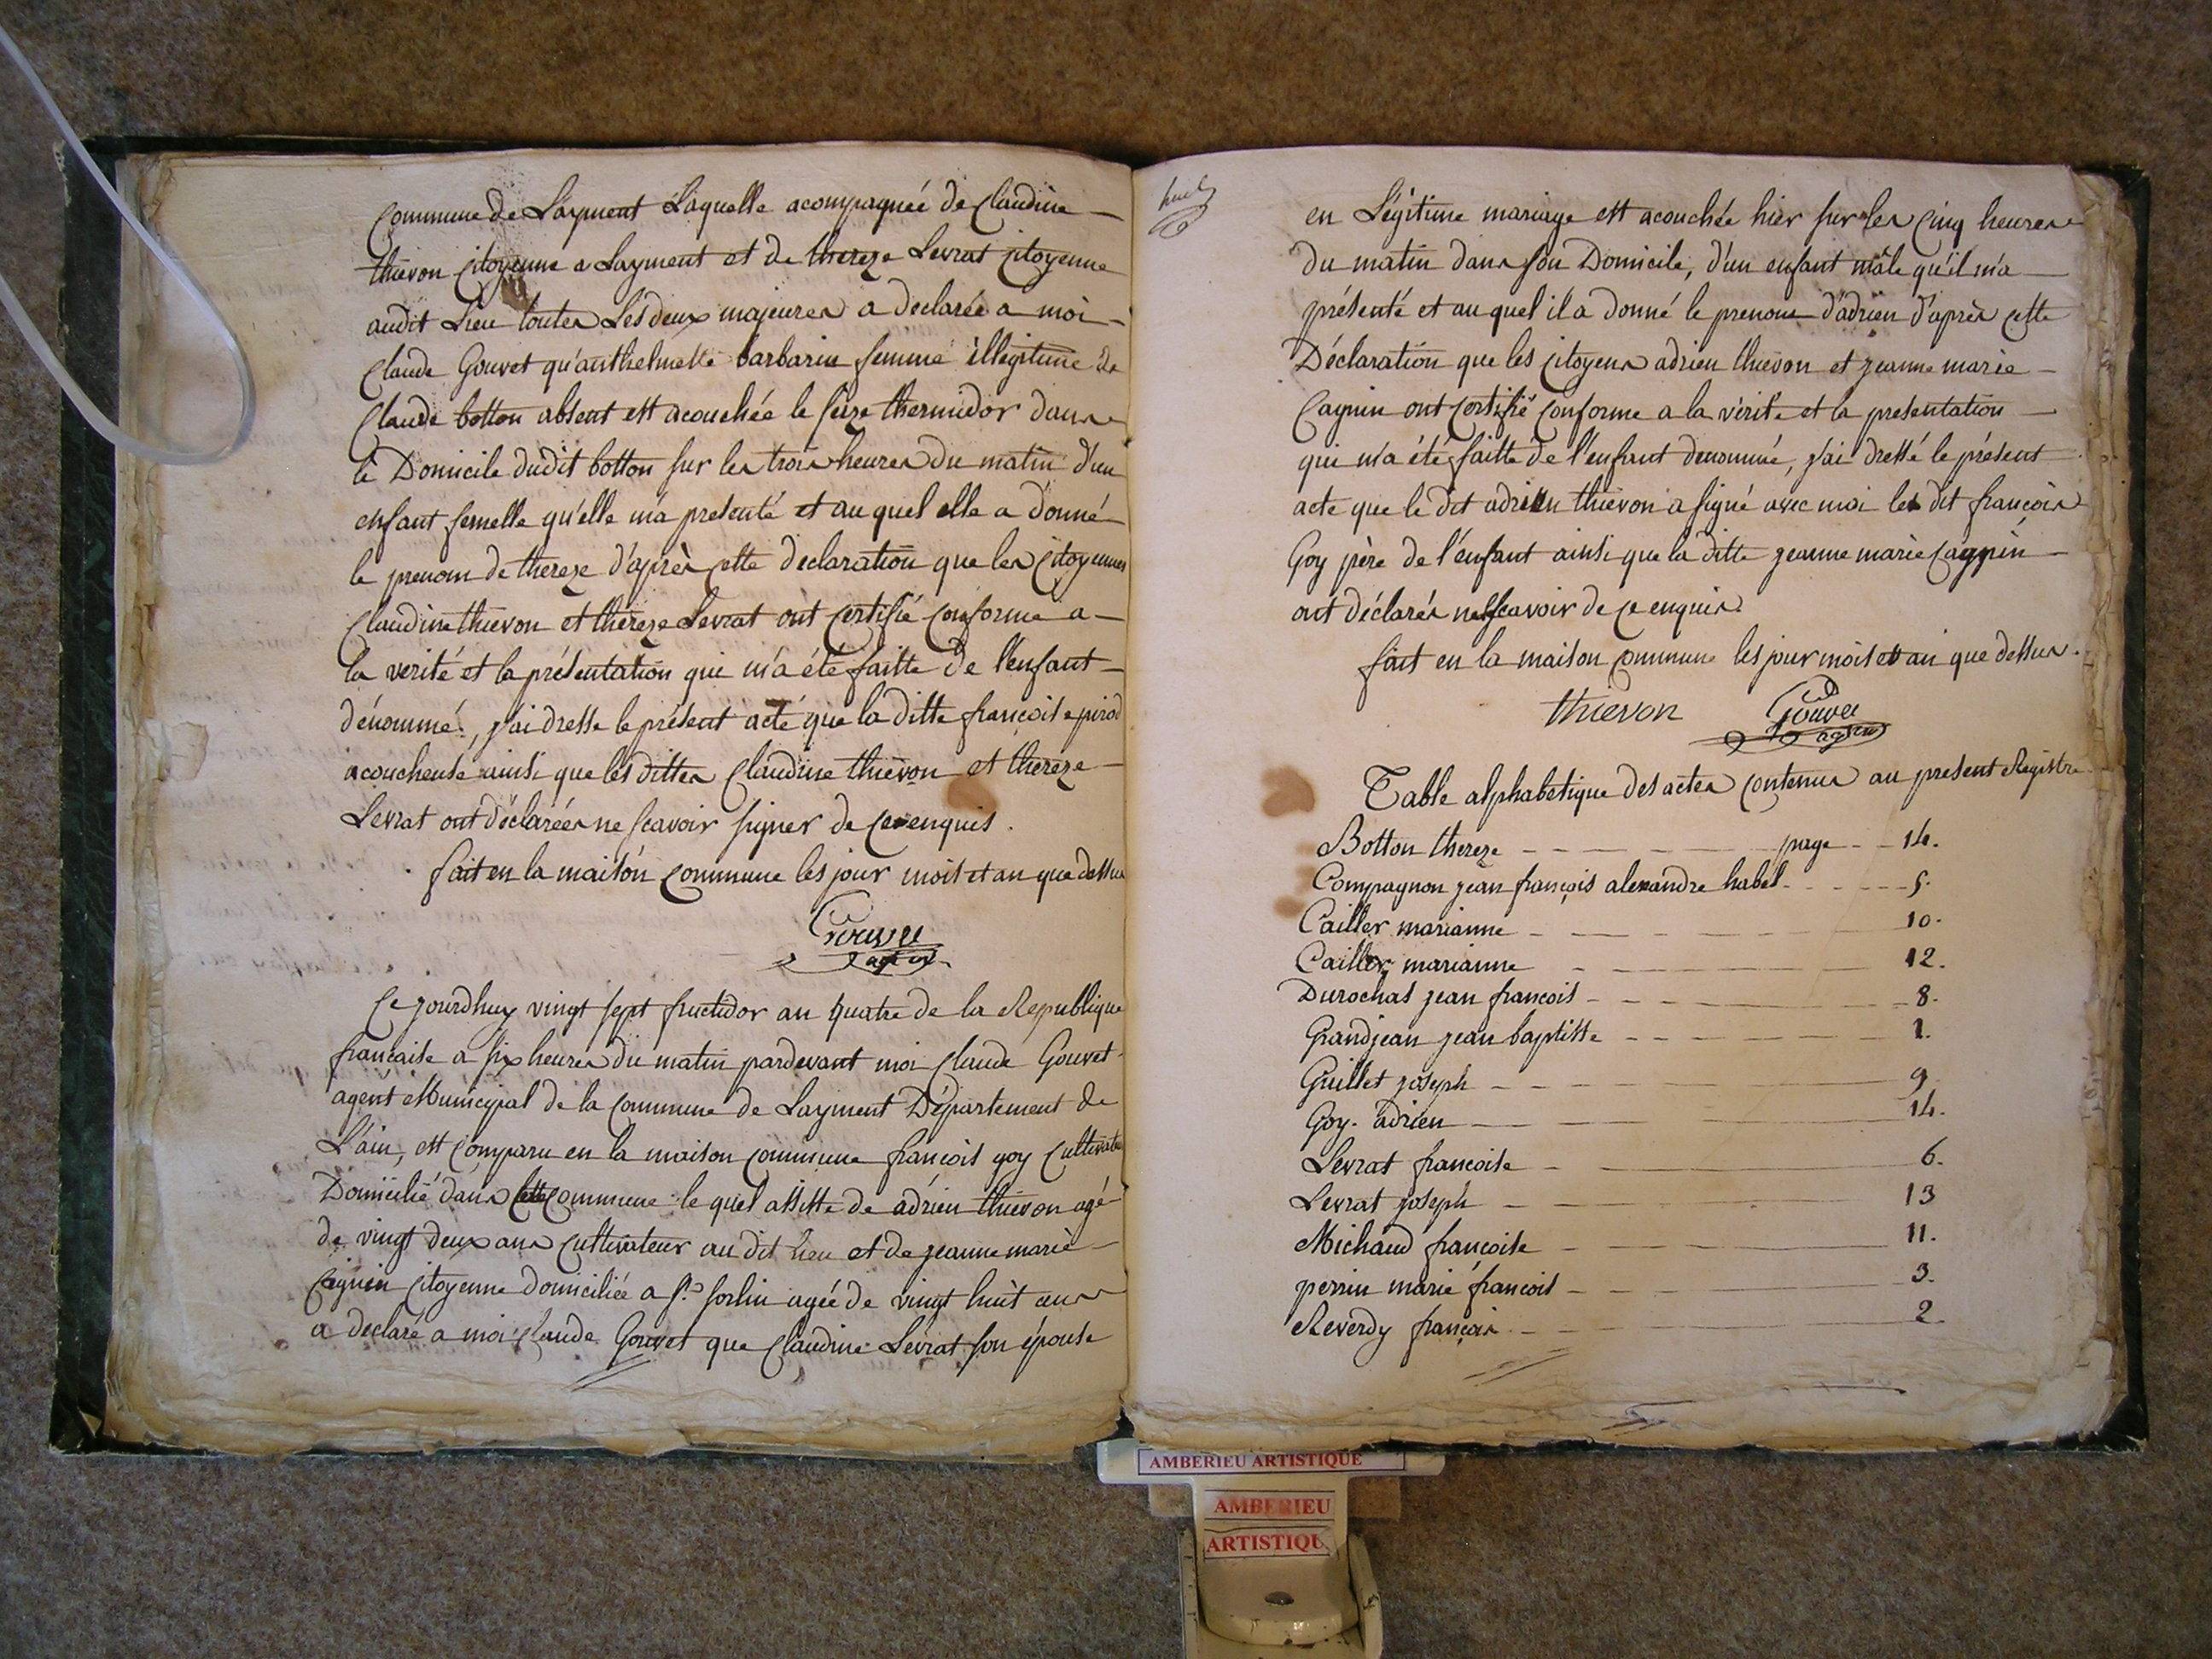 commune de Layment Laquelle acompagneé de Claudine
thievon citoyenne a Layment et de thereze Levrat citoyenne
audit Lieu toutes Les deux majeures a declarée a moi
Claude Gouvet qu'anthelmette barbarin femme illégitime de
Claude botton absent est acouchée le seize thermidor dans
le Domicile dudit botton sur les trois heures du matin d'un
enfant femelle qu'elle m'a presenté et au quel elle a donné
le prenom de thereze d'après cette declaration que les citoyennes
Claudine thievon et thereze Levrat ont certifié conforme a
la verité et la présentation qui m'a été faitte de l'enfant
dénommé, j'ai dresse le présent acte que la ditte francoise pirod
acoucheuse ainsi que les dittes Claudine thievon et thereze
Levrat ont déclarées ne scavoir signer de ce enquis.
fait en la maison commune les jour mois et an que dessus
Gouvet
agent
Ce jourdhuy vingt sept fructidor an quatre de la Republique
francaise a six heures du matin pardevant moi Claude Gouvet
agent Municipal de la commune de Layment Département de
L'ain, est comparu en la maison commune francois goy cultivate
Domicilié dans cette commune le quel assisté de adrien thievon agé
de vingt deux ans cultivateur au dit lieu et de jeanne marie
Cagnin citoyenne domiciliée a St sorlin agée de vingt huit ans
a declaré a moi Claude Gouvet que Claudine Levrat son épouse
en Légitime mariage est acouchée hier sur les cinq heures
du matin dans son Domicile, d'un enfant mâle qu'il m'a
présenté et au quel il a donné le prenom d'adrien d'après cette
Déclaration que les citoyens adrien thievon et jeanne marie
Cagnin ont certifié conforme a la vérité et la presentation
qui m'a été faitte de l'enfant denommé, j'ai dressé le présent
acte que le dit adrien thievon a signé avec moi le dit francois
Goy père de l'enfant ainsi que la ditte jeanne marie Cagnin
ont déclarés ne scavoir de ce enquis.
fait en la maison commune les jour mois et an que dessus.
thievon Gouvet
agent
Table alphabetique des actes contenus au present Registre
Botton thereze page 14.
Compagnon jean françois alexandre habel 5.
Cailler marianne 10.
Cailler marianne 12.
Durochas jean francois 8.
Grandjean jean baptiste 1.
Guillet joseph 9
Goy. adrien 14.
Levrat francoise 6.
Levrat joseph 13
Michaud françoise 11.
perrin marie francois 3.
Reverdy françois 2.
AMBERIEU ARTISTIQUE
AMBERIEU
ARTISTIQU